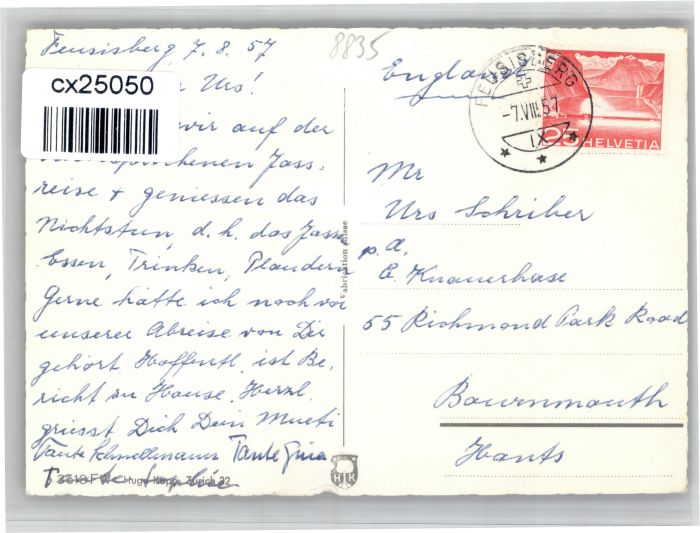 Feusisberg 7. 8. 57
8835
cx25050
Urs!
wir auf der
Jass,
reise + geniessen das
Nichtstun, d. h. das Jassen
Essen, Trinken, Plaudern
Gerne hätte ich noch vor
unserer Abreise von Dir
gehört. Hoffentl. ist Be,
richt zu Hause. Herzl.
grüsst Dich Dein Mueti
Tante Schnellmann Tante Gina
Tante Sophie
3318 FW Hugo Kopp, Zürich 32
Fabrication suisse
HK
England
FEUSISBERG
-7.VIII.57
IX
25 HELVETIA
Mr
Urs Schriber
p. a.
C. Knauerhase
55 Richmond Park Road
Bournmouth
Hants